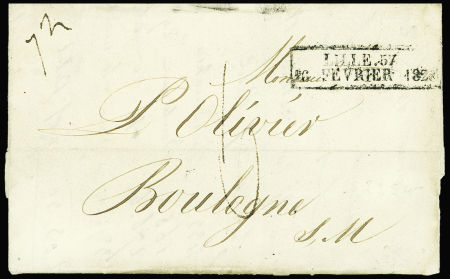 LILLE.57
26 FÉVRIER 182
Monsieur
P. Olivier
Boulogne
S. M